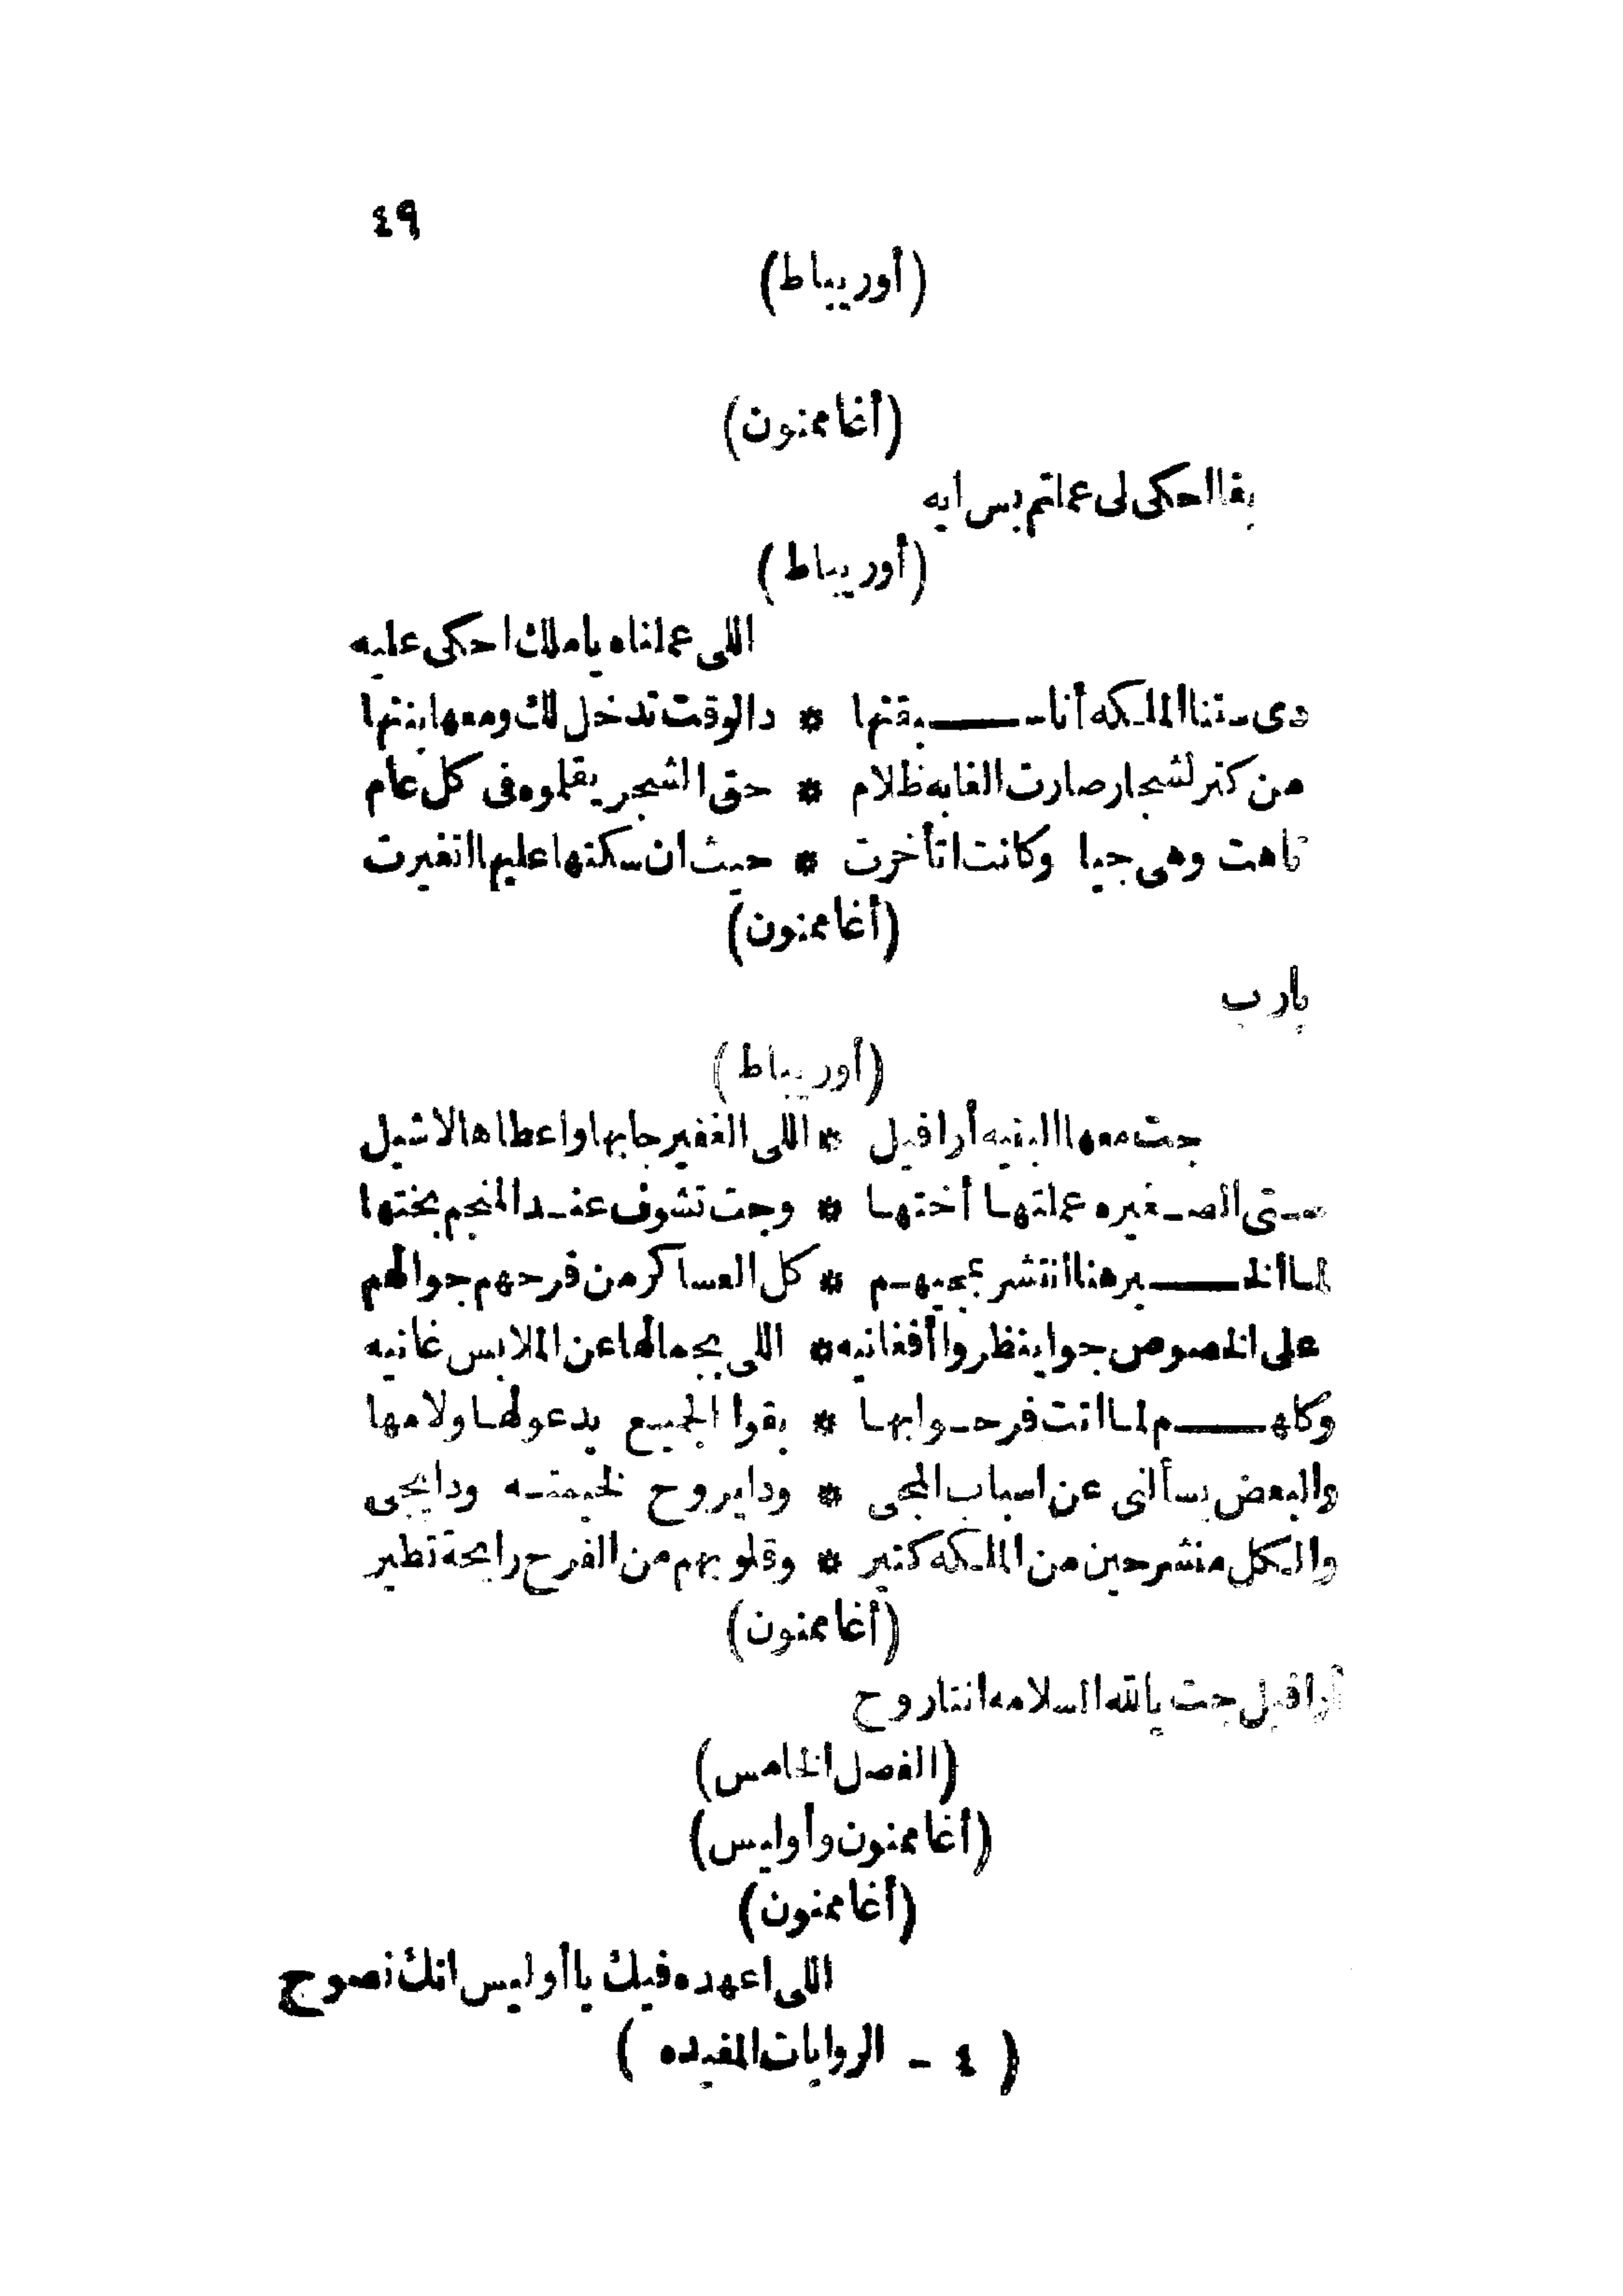 ٤٩
(أوريباط)
(أغاممنون)
بقا احكى لى عملتم بس ايه
(أوريباط)
اللى عملناه يا ملك احكى عليه
دى ستنا الملكه أنا سبقتها * دالوقت تدخل لك ومعها بنتها
من كتر لشجار صارت الغابه ظلام * حق الشجر يقلموه فى كل عام
تاهت وهى جيا وكانت اتأخرت * حيث ان سكتها عليها اتغيرت
(أغاممنون)
يارب
(أوريباط)
جت معها البنيه أرافيل * اللى الغفير جابها واعطاها لاشيل
ستى الصغيره عملتها أختها * وجت تشوف عند المنجم بختها
لما الخبر هنا انتشر بمجيهم * كل العساكر من فرحهم جوا لهم
على الخصوص جوا ينظروا أفغانيه * اللى بجمالها عن الملابس غانيه
وكلهم لما اتت فرحوا بها * بقوا الجميع يدعو لها ولامها
والبعض يسألنى عن اسباب المجى * ودا يروح لخيمته ودا يجى
والكل منشرحين من الملكه كتير * وقلوبهم من الفرح رايحة تطير
(أغاممنون)
أرافيل جت يالله السلامه انتا روح
(الفصل الخامس)
(أغاممنون وأوليس)
(أغاممنون)
اللى اعهده فيك يا أوليس انك نصوح
( ٤ - الروايات المفيده )